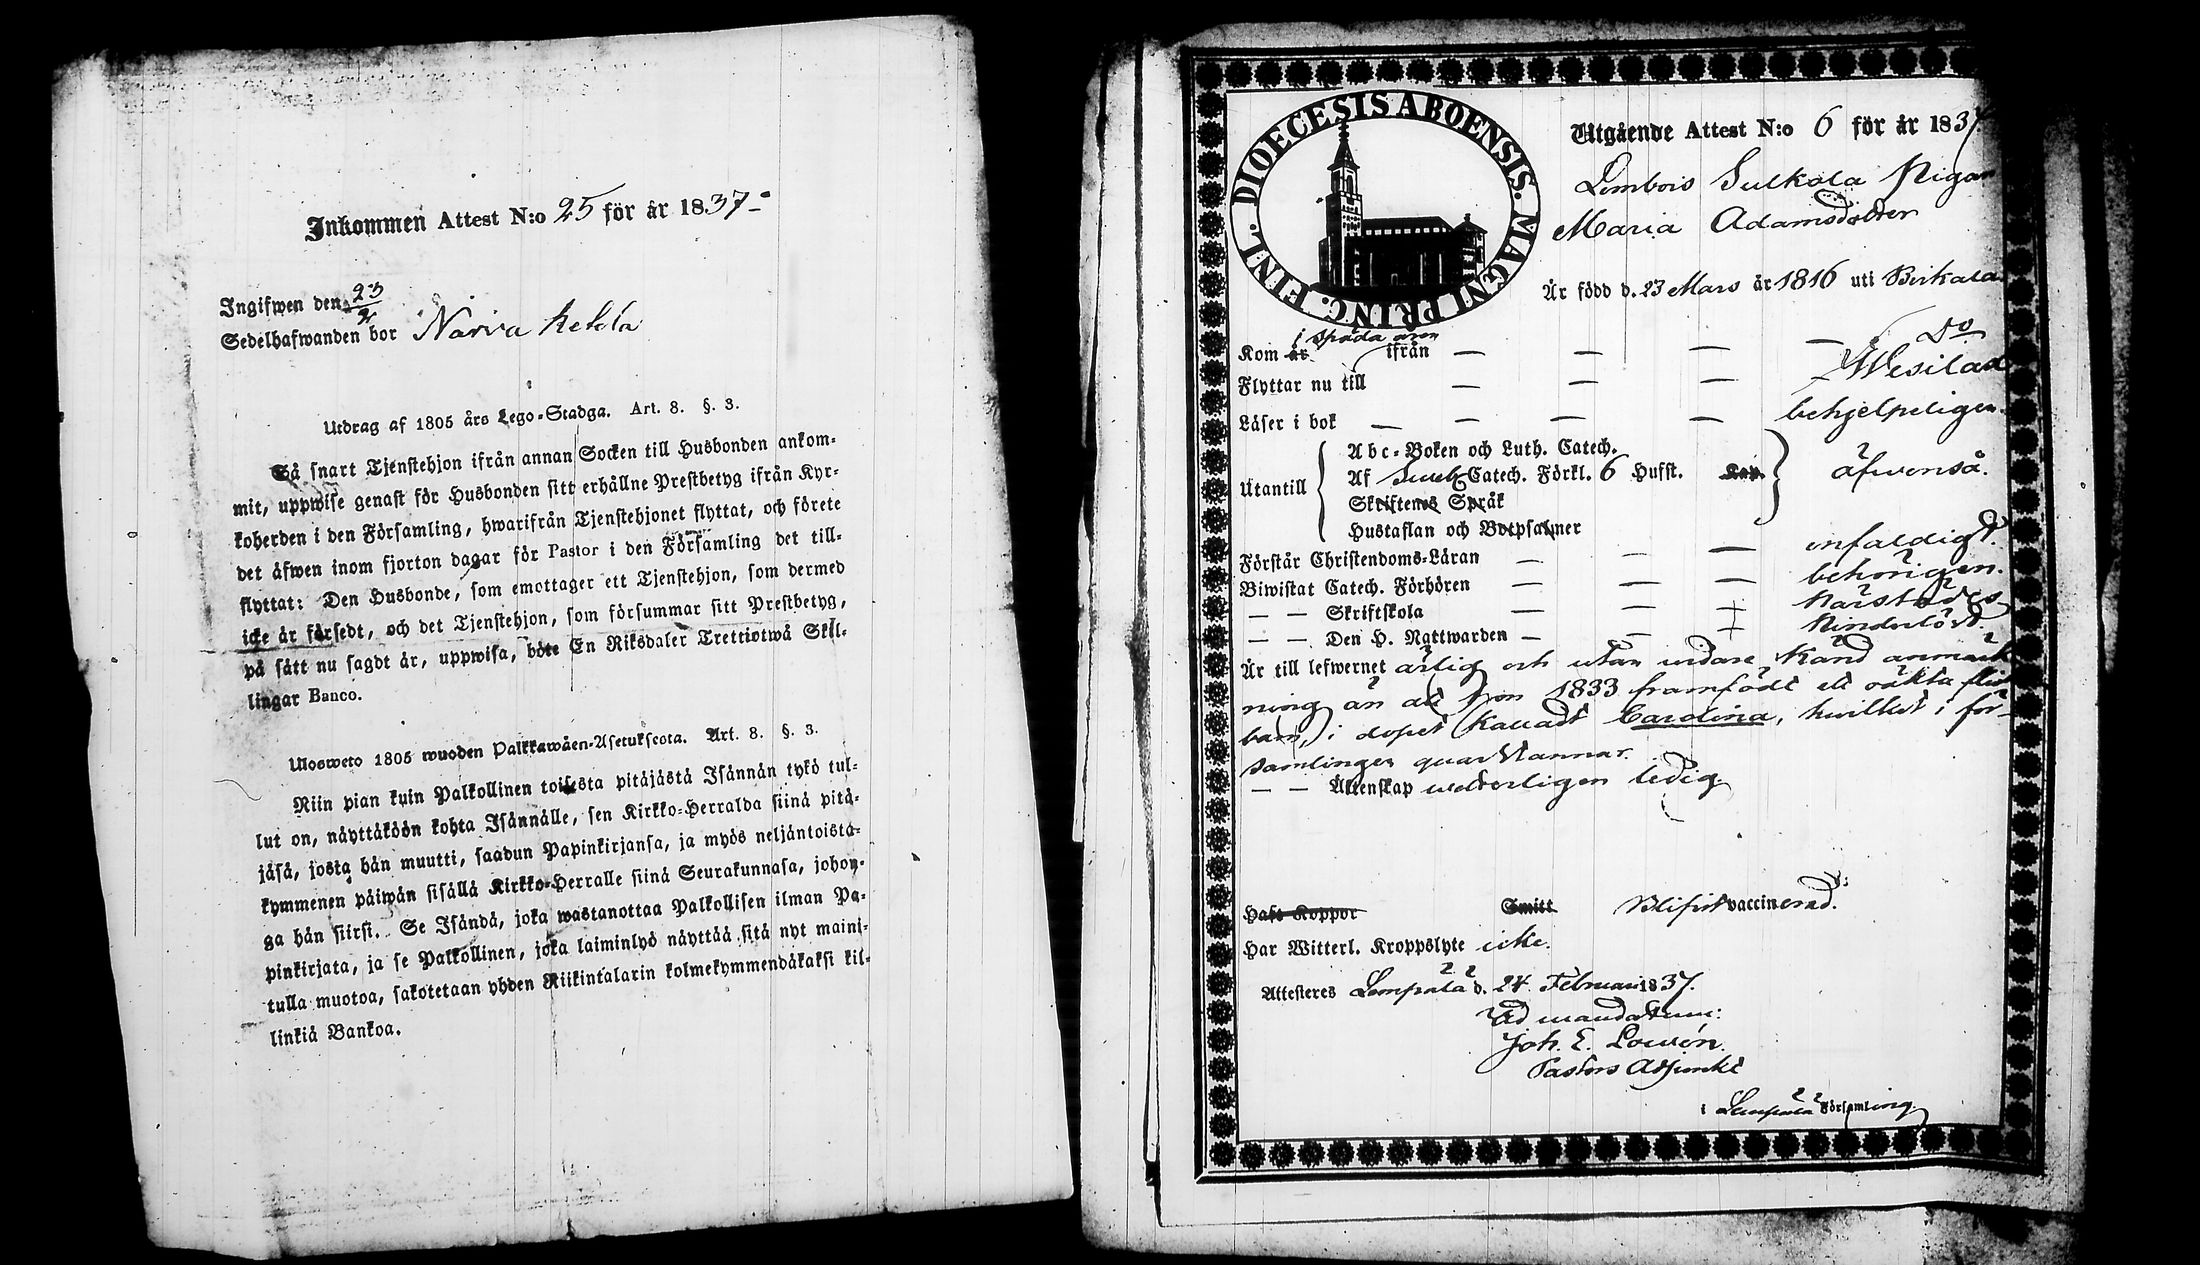 Inkommen Attest N:o 25 för år 1837
Ingifwen den 23/4
Sedelhafwanden bor Narva Ketola
Utdrag af 1805 års Lego-Stadga. Art. 8. §. 3.
Så snart Tjenstehjon ifrån annan Socken till Husbonden ankom-
mit, uppwise genast för Husbonden sitt erhållne Prestbetyg ifrån Kyr-
koherden i den Församling, hwarifrån Tjenstehjonet flyttat, och förete
det äfwen inom fjorton dagar för Pastor i den Församling det till-
flyttat: Den Husbonde, som emottager ett Tjenstehjon, som dermed
icke är försedt, och det Tjenstehjon, som försummar sitt Prestbetyg,
på sätt nu sagdt är, uppwisa, böte En Riksdaler Trettiotwå Skil-
lingar Banco.
Ulosweto 1805 wuoden Palkkawäen-Asetuksesta. Art. 8. §. 3.
Niin pian kuin Palkollinen toisesta pitäjästä Isännän tykö tul-
lut on, näyttäköön kohta Isännälle, sen Kirkko-Herralda siinä pitä-
jäsä, josta hän muutti, saadun Papinkirjansa, ja myös neljäntoista-
kymmenen päiwän sisällä Kirkko-Herralle siinä Seurakunnasa, johon-
ga hän siirsi. Se Isändä, joka wastanottaa Palkollisen ilman Pa-
pinkirjata, ja se Palkollinen, joka laiminlyö näyttää sitä nyt maini-
tulla muotoa, sakotetaan yhden Riikintalarin kolmekymmendäkaksi kil-
linkiä Bankoa.
DIOECESIS ABOENSIS. MAGNI PRINC. FINL.
Utgående Attest N:o 6 för år 1837.
Lembois Sulkola Pigan
Maria Adamsdotter
Är född d. 23 Mars år 1816 uti Birkala
Kom år i späda åren ifrån — — — — Do
Flyttar nu till — — — Wesilax
Läser i bok — — — — behjelpeligen.
Utantill
Abc-Boken och Luth. Catech.
Af Sweb. Catech. Förkl. 6 Hufst. Kap.
Skriftenes Språk
Hustaflan och Botpsalmer
äfwenså.
Förstår Christendoms-Läran — — — enfaldigt.
Biwistat Catech. Förhören — — — behörigen.
— — Skriftskola — — — Närstädes
— — Den H. Nattwarden — — — hinderlöst.
Är till lefwernet ärlig och utan widare känd anmärk
ning än att hon 1833 framfödt ett oäkta flick
barn, i dopet kalladt Carolina, hwilket i för-
samlingen quarstannar.
— — Äktenskap wederligen ledig.
Haft Koppor Smitt Blifwit vaccinerad.
Har Witterl. Kroppslyte icke.
Attesteres Lempälä d. 24 Februari 1837.
Ad mandatum:
Joh. E. Lowén.
Pastors Adjunkt
i Lempälä Församling.